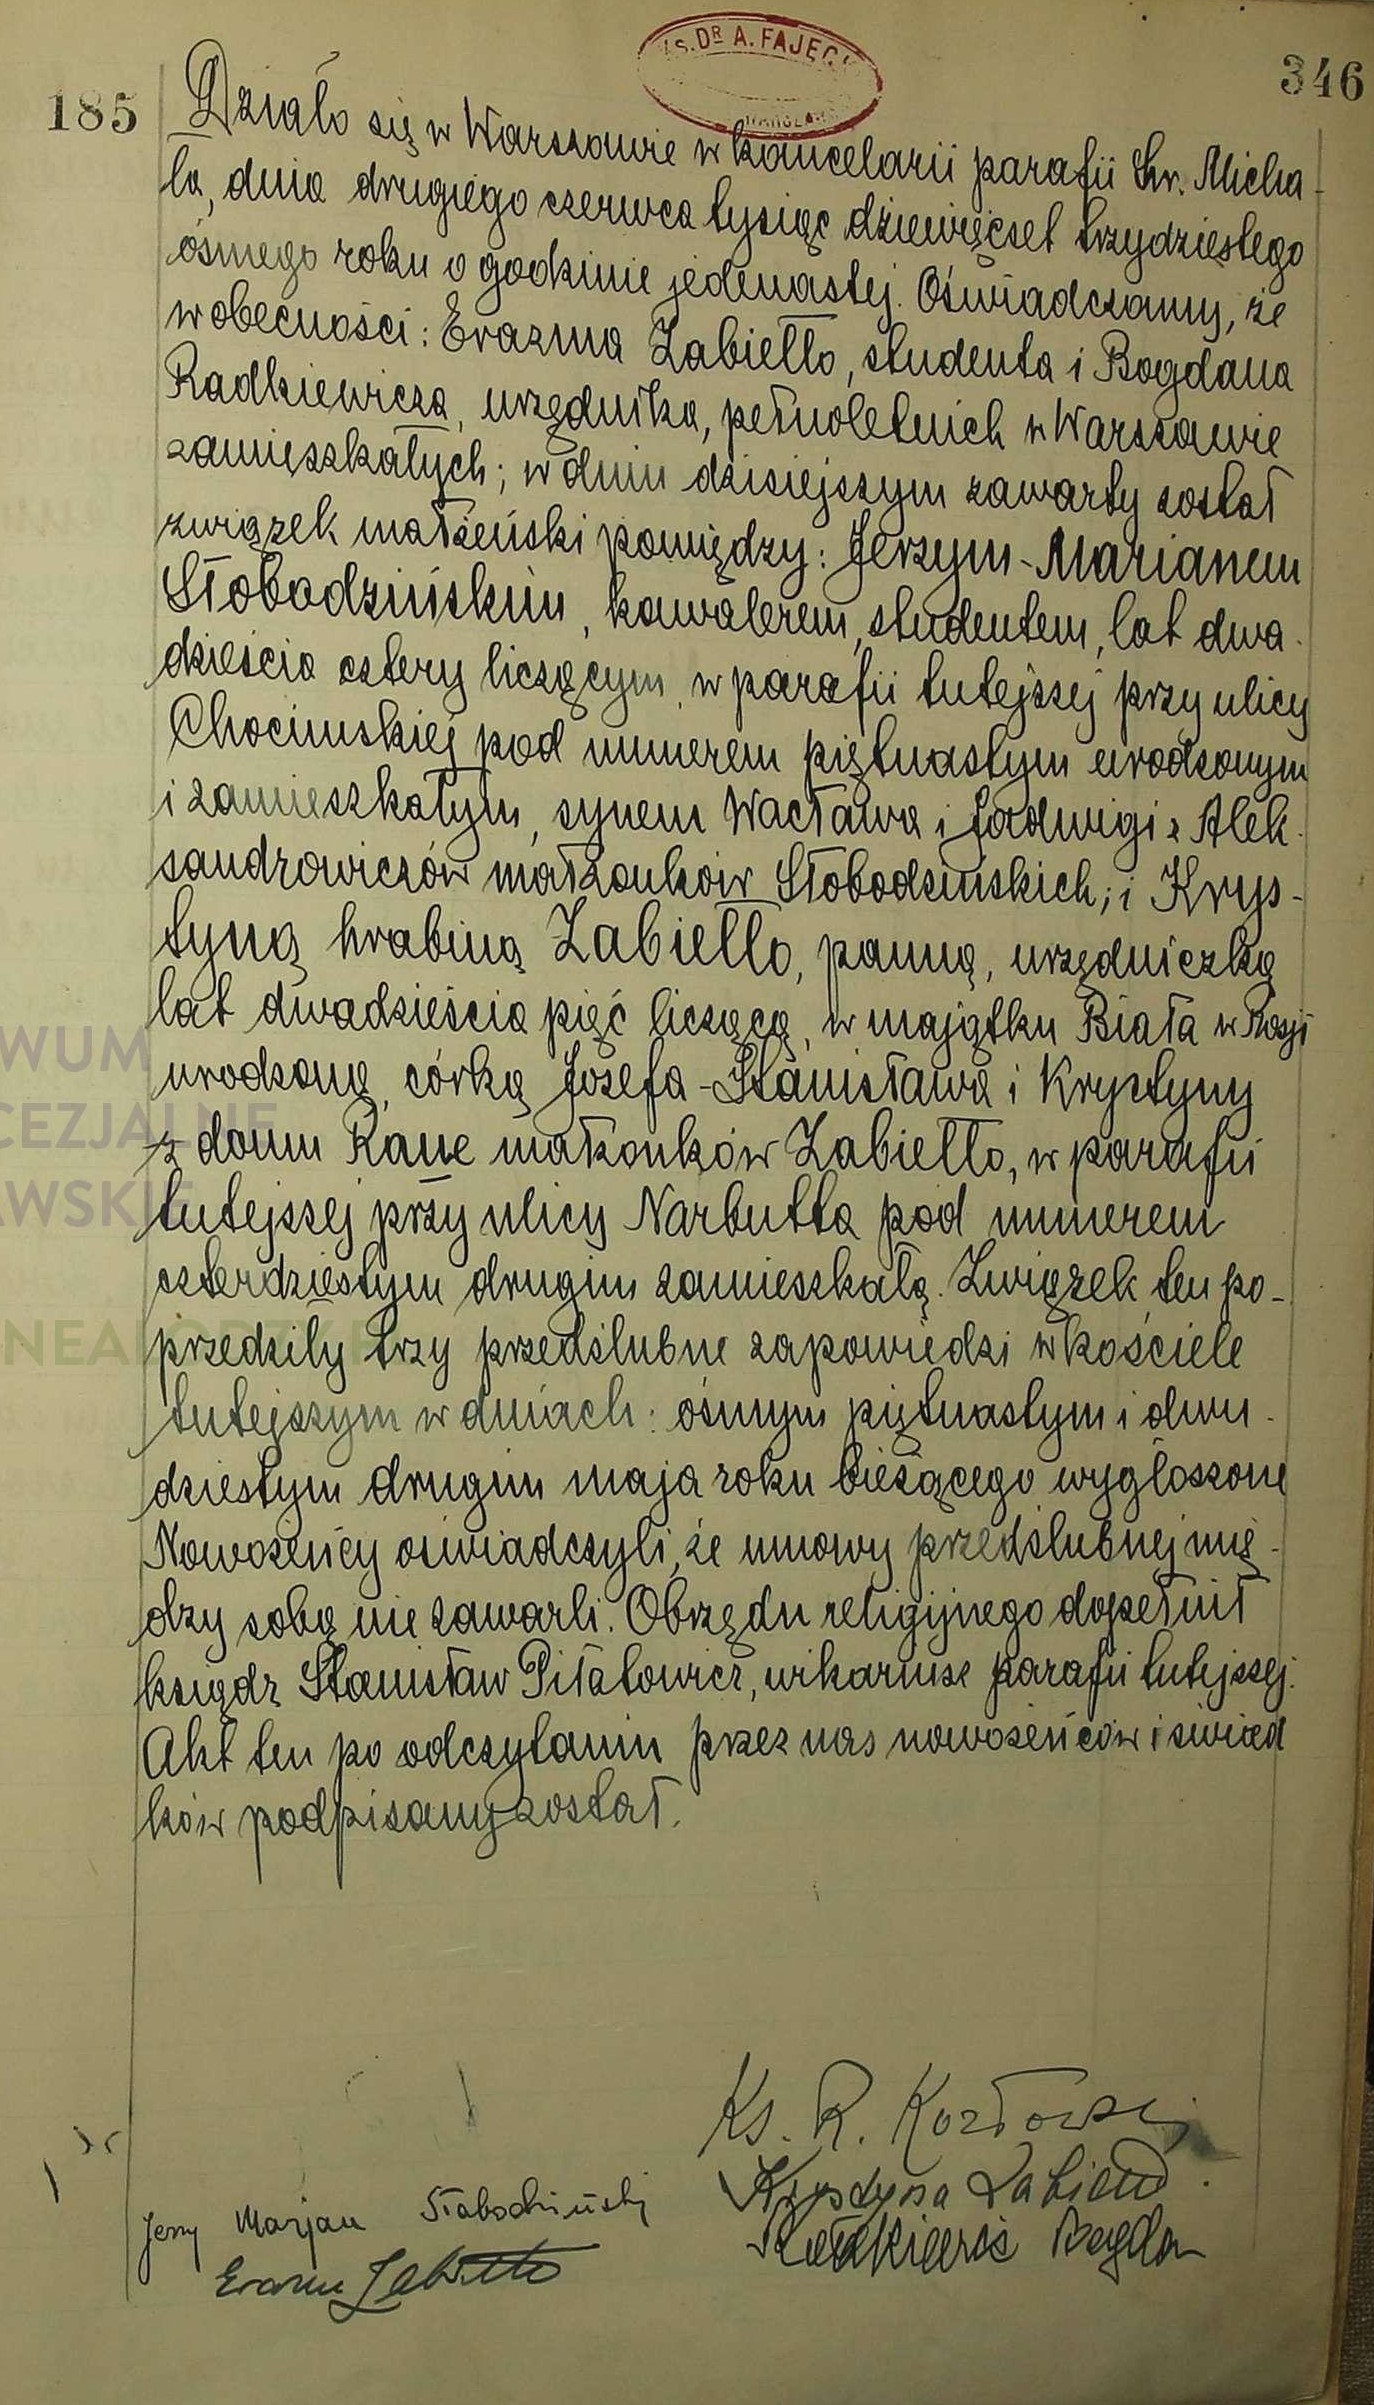 KS. DR A. FAJĘC
346
185
Działo się w Warszawie w kancelarii parafii Św. Micha-
ła, dnia drugiego czerwca tysiąc dziewięćset trzydziestego
ósmego roku o godzinie jedenastej. Oświadczamy, że
w obecności: Erazma Zabiełło, studenta i Bogdana
Radkiewicza, urzędnika, pełnoletnich w Warszawie
zamieszkałych; w dniu dzisiejszym zawarty został
związek małżeński pomiędzy: Jerzym-Marianem
Słobodzińskim, kawalerem, studentem, lat dwa-
dzieścia cztery liczącym, w parafii tutejszej przy ulicy
Chocimskiej pod numerem piętnastym urodzonym
i zamieszkałym, synem Wacława i Jadwigi z Alek-
sandrowiczów małżonków Słobodzińskich; i Krys-
tyną hrabiną Zabiełło, panną, urzędniczką
lat dwadzieścia pięć liczącą, w majątku Biała w Rosji
urodzoną, córką Józefa-Stanisława i Krystyny
z domu Rane małżonków Zabiełło, w parafii
tutejszej przy ulicy Narbutta pod numerem
czterdziestym drugim zamieszkałą. Związek ten po-
przedziły trzy przedślubne zapowiedzi w kościele
tutejszym w dniach: ósmym piętnastym i dwu-
dziestym drugim maja roku bieżącego wygłoszone
Nowożeńcy oświadczyli, że umowy przedślubnej mię-
dzy sobą nie zawarli. Obrzędu religijnego dopełnił
ksiądz Stanisław Piłatowicz, wikariusz parafii tutejszej.
Akt ten po odczytaniu przez nas nowożeńców i świad
ków podpisany został.
Ks. R. Kozłowski
Krystyna Zabiełło
Jerzy Marjan Słobodziński
Radkiewicz Bogdan
Erazm Zabiełło
WUM
CEZJALNE
AWSKIE
NEALO